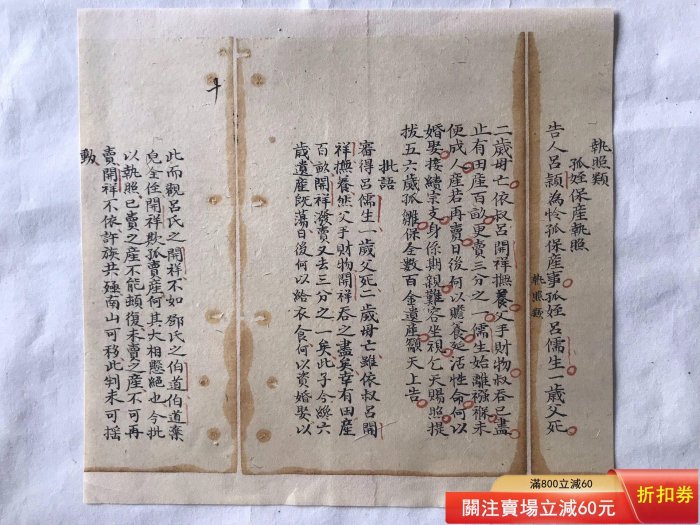 執照類
孤姪保產執照
告人呂穎為怜孤保產事孤姪呂儒生一歲父死
執照類
二歲母亡依叔呂開祥撫養父手財物叔吞已盡
止有田產百畝更賣三分之一儒生始離襁褓未
便成人產若再賣日後何以贍養延活性命何以
婚娶接續宗支身係期親難容坐視乞天賜照提
拔五六歲孤雛保全數百金遺產籲天上告
批語
審得呂儒生一歲父死二歲母亡雖依叔呂開
祥撫養然父手財物開祥吞之盡矣幸有田產
百畝開祥潑賣又去三分之一矣此子今纔六
歲遺產既蕩日後何以給衣食何以資婚娶以
十
此而觀呂氏之開祥不如鄧氏之伯道伯道棄
兒全侄開祥欺孤賣產何其大相懸絕也今批
以執照已賣之產不能頓復未賣之產不可再
賣開祥不依許族共殛南山可移此判未可搖
動
滿800立減60
關注賣場立減60元
折扣券